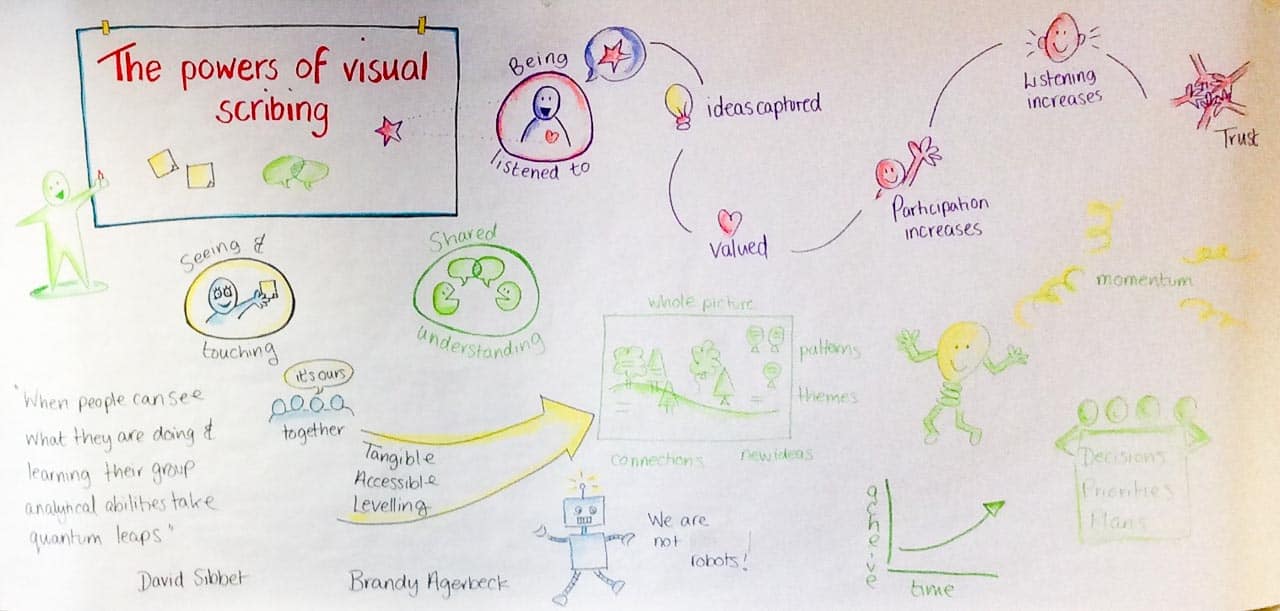 The powers of visual
scribing
Being
listened to
ideas captured
Valued
Participation
increases
Listening
increases
Trust
Seeing &
touching
Shared
understanding
it's ours
together
"When people can see
what they are doing &
learning their group
analytical abilities take
quantum leaps"
David Sibbet
Tangible
Accessible
Levelling
Brandy Agerbeck
whole picture
patterns
themes
connections
new ideas
We are
not
robots!
momentum
Decisions
Priorities
Plans
acheive
time